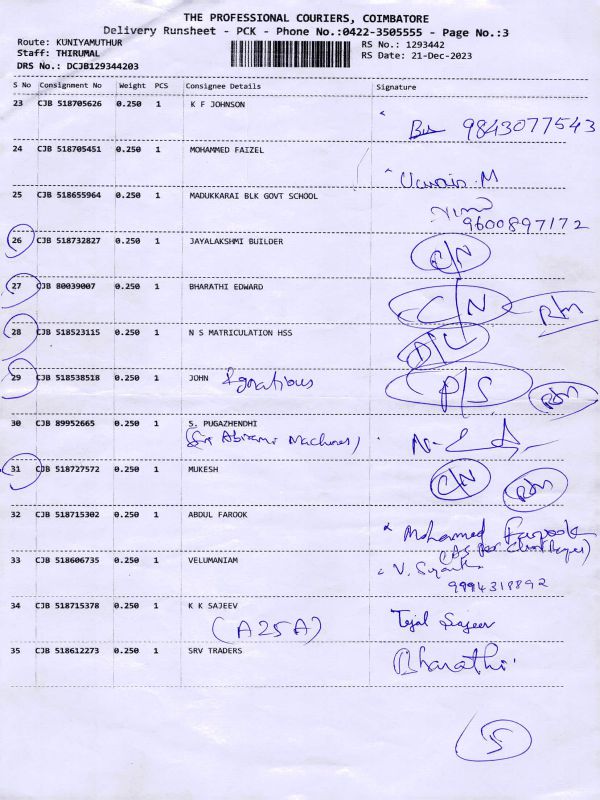 THE PROFESSIONAL COURIERS, COIMBATORE
Delivery Runsheet - PCK - Phone No.:0422-3505555 - Page No.:3
Route: KUNIYAMUTHUR
RS No.: 1293442
Staff: THIRUMAL
RS Date: 21-Dec-2023
DRS No.: DCJB129344203
S No Consignment No Weight PCS Consignee Details Signature
23 CJB 518705626 0.250 1 K F JOHNSON
9843077543
24 CJB 518705451 0.250 1 MOHAMMED FAIZEL
M
25 CJB 518655964 0.250 1 MADUKKARAI BLK GOVT SCHOOL
9600897172
26 CJB 518732827 0.250 1 JAYALAKSHMI BUILDER C/N
27 CJB 80039007 0.250 1 BHARATHI EDWARD C/N
28 CJB 518523115 0.250 1 N S MATRICULATION HSS D/L
29 CJB 518538518 0.250 1 JOHN Ignatious P/S
30 CJB 89952665 0.250 1 S. PUGAZHENDHI
(Sri Abirami Machines)
31 CJB 518727572 0.250 1 MUKESH C/N
32 CJB 518715302 0.250 1 ABDUL FAROOK
Mohamed Farook
33 CJB 518606735 0.250 1 VELUMANIAM V.
9994318892
34 CJB 518715378 0.250 1 K K SAJEEV Tejal Sajeev
(A25A)
35 CJB 518612273 0.250 1 SRV TRADERS Bharathi
5